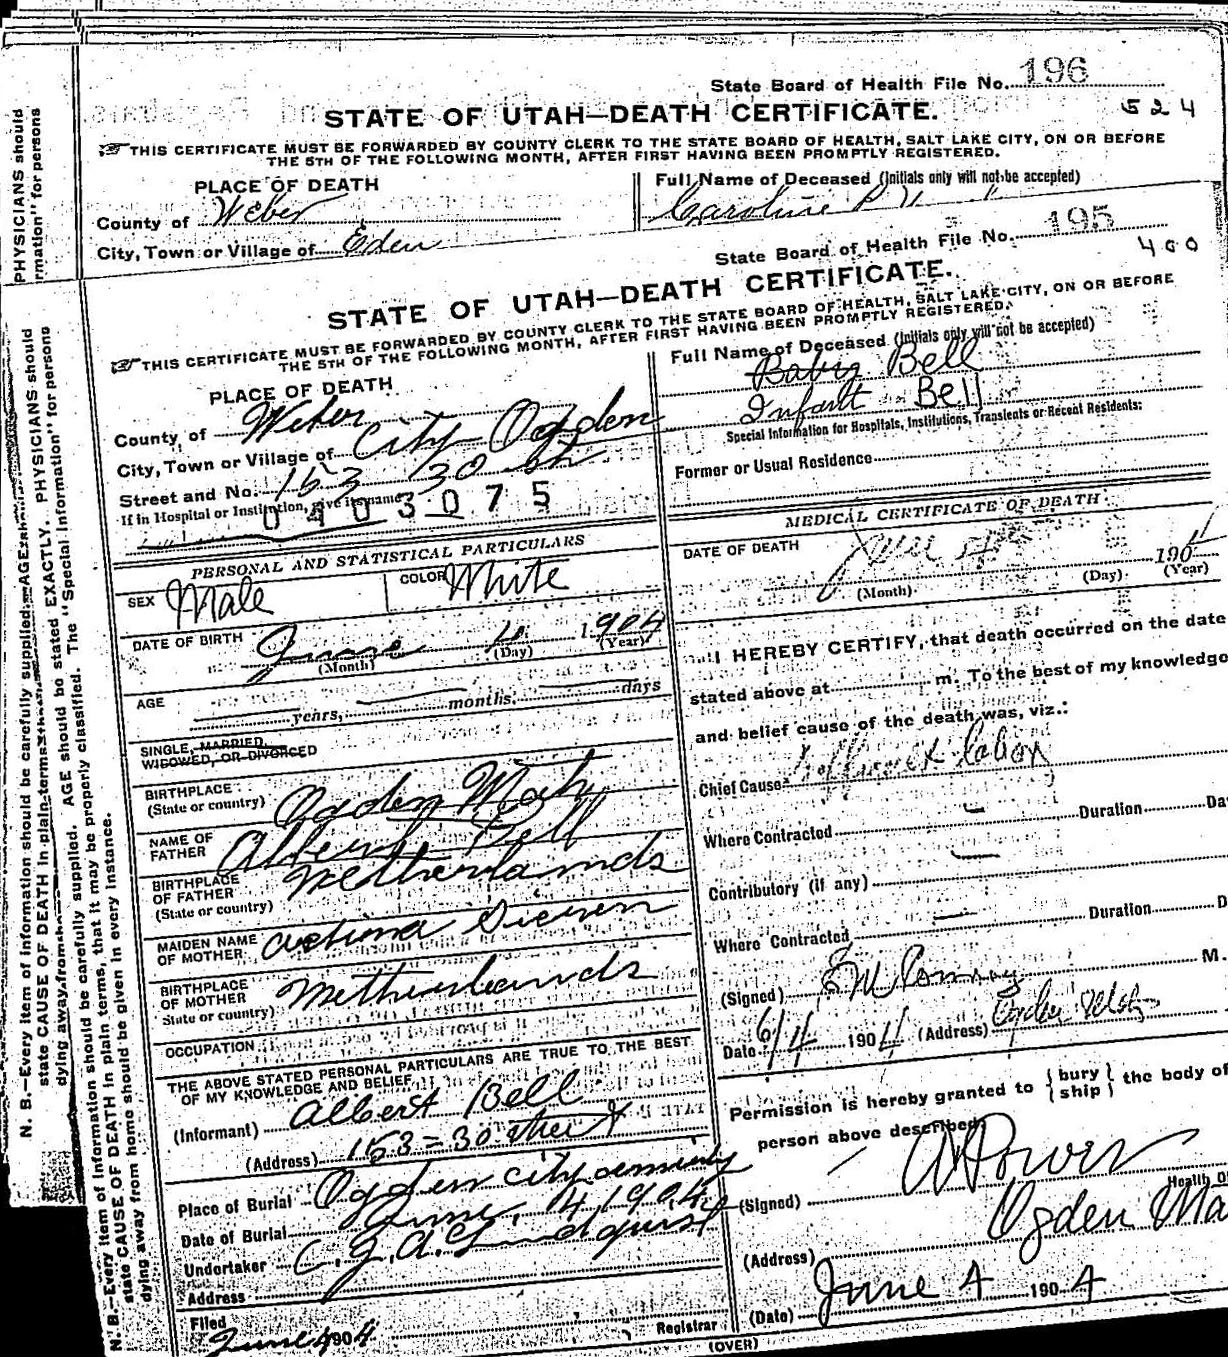 State Board of Health File No. 196
524
STATE OF UTAH—DEATH CERTIFICATE.
THIS CERTIFICATE MUST BE FORWARDED BY COUNTY CLERK TO THE STATE BOARD OF HEALTH, SALT LAKE CITY, ON OR BEFORE
THE 5TH OF THE FOLLOWING MONTH, AFTER FIRST HAVING BEEN PROMPTLY REGISTERED.
PLACE OF DEATH
County of Weber
City, Town or Village of Eden
Full Name of Deceased (Initials only will not be accepted)
Caroline
State Board of Health File No. 195
400
STATE OF UTAH—DEATH CERTIFICATE.
THIS CERTIFICATE MUST BE FORWARDED BY COUNTY CLERK TO THE STATE BOARD OF HEALTH, SALT LAKE CITY, ON OR BEFORE
THE 5TH OF THE FOLLOWING MONTH, AFTER FIRST HAVING BEEN PROMPTLY REGISTERED.
PLACE OF DEATH
County of Weber
City, Town or Village of City Ogden
Street and No. 153 30 st
If in Hospital or Institution, give its name
0403075
Full Name of Deceased (Initials only will not be accepted)
Baby Bell
Infant Bell
Special Information for Hospitals, Institutions, Transients or Recent Residents:
Former or Usual Residence
PERSONAL AND STATISTICAL PARTICULARS
SEX Male COLOR White
DATE OF BIRTH June 4 1904
(Month) (Day) (Year)
AGE
years, months, days
SINGLE, MARRIED,
WIDOWED, OR DIVORCED
BIRTHPLACE
(State or country) Ogden Utah
NAME OF
FATHER Albert Bell
BIRTHPLACE
OF FATHER
(State or country) Netherlands
MAIDEN NAME
OF MOTHER
BIRTHPLACE
OF MOTHER
State or country) Netherlands
OCCUPATION
THE ABOVE STATED PERSONAL PARTICULARS ARE TRUE TO THE BEST
OF MY KNOWLEDGE AND BELIEF
(Informant) Albert Bell
(Address) 153-30 street
Place of Burial Ogden city cemetery
Date of Burial June, 4 1904
Undertaker C. J. A. Lindquist
Address
Filed
June 4 1904
Registrar
MEDICAL CERTIFICATE OF DEATH
DATE OF DEATH June 4 1904
(Month) (Day) (Year)
I HEREBY CERTIFY, that death occurred on the date
stated above at m. To the best of my knowledge
and belief cause of the death was, viz.:
Chief Cause labor
Where Contracted Duration Da
Contributory (if any)
Where Contracted Duration D
(Signed) M.
Date 6/4 1904 (Address) Ogden Utah
Permission is hereby granted to { bury ship } the body of
person above described
(Signed) Power
Health O
(Address) Ogden
(Date) June 4 1904
(OVER)
PHYSICIANS should
rmation" for persons
N. B.—Every item of information should be carefully supplied. AGE should be stated EXACTLY. PHYSICIANS should
state CAUSE OF DEATH in plain terms, that it may be properly classified. The "Special Information" for persons
dying away from home should be given in every instance.